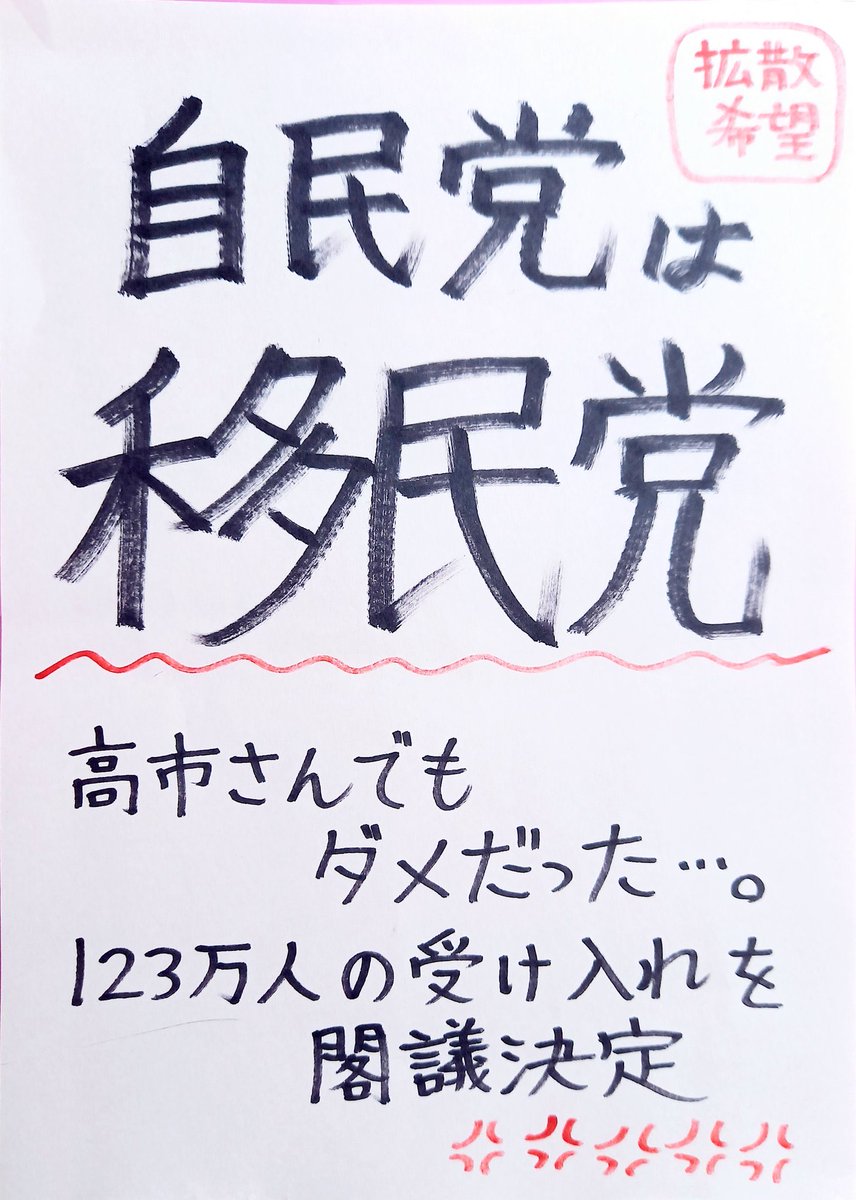 拡散
希望
自民党は
移民党
高市さんでも
ダメだった…。
123万人の受け入れを
閣議決定